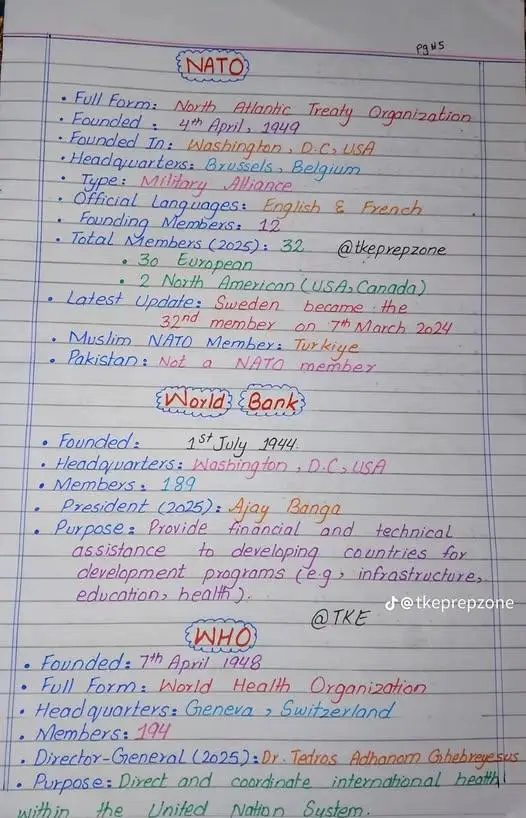 Pg#5
NATO
• Full Form: North Atlantic Treaty Organization
• Founded : 4th April, 1949
• Founded In: Washington, D.C, USA
• Headquarters: Brussels, Belgium
• Type: Military Alliance
• Official Languages: English & French
• Founding Members: 12
• Total Members (2025): 32 @tkeprepzone
• 30 European
• 2 North American (USA, Canada)
• Latest Update: Sweden became the
32nd member on 7th March 2024
• Muslim NATO Member: Turkiye
• Pakistan: Not a NATO member
World Bank
• Founded: 1st July 1944.
• Headquarters: Washington, D.C, USA
• Members: 189
• President (2025): Ajay Banga
• Purpose: Provide financial and technical
assistance to developing countries for
development programs (e.g, infrastructure,
education, health).
@tkeprepzone
@TKE
WHO
• Founded: 7th April 1948
• Full Form: World Health Organization
• Headquarters: Geneva, Switzerland
• Members: 194
• Director-General (2025): Dr. Tedros Adhanom Ghebreyesus
• Purpose: Direct and coordinate international health
within the United Nation System.